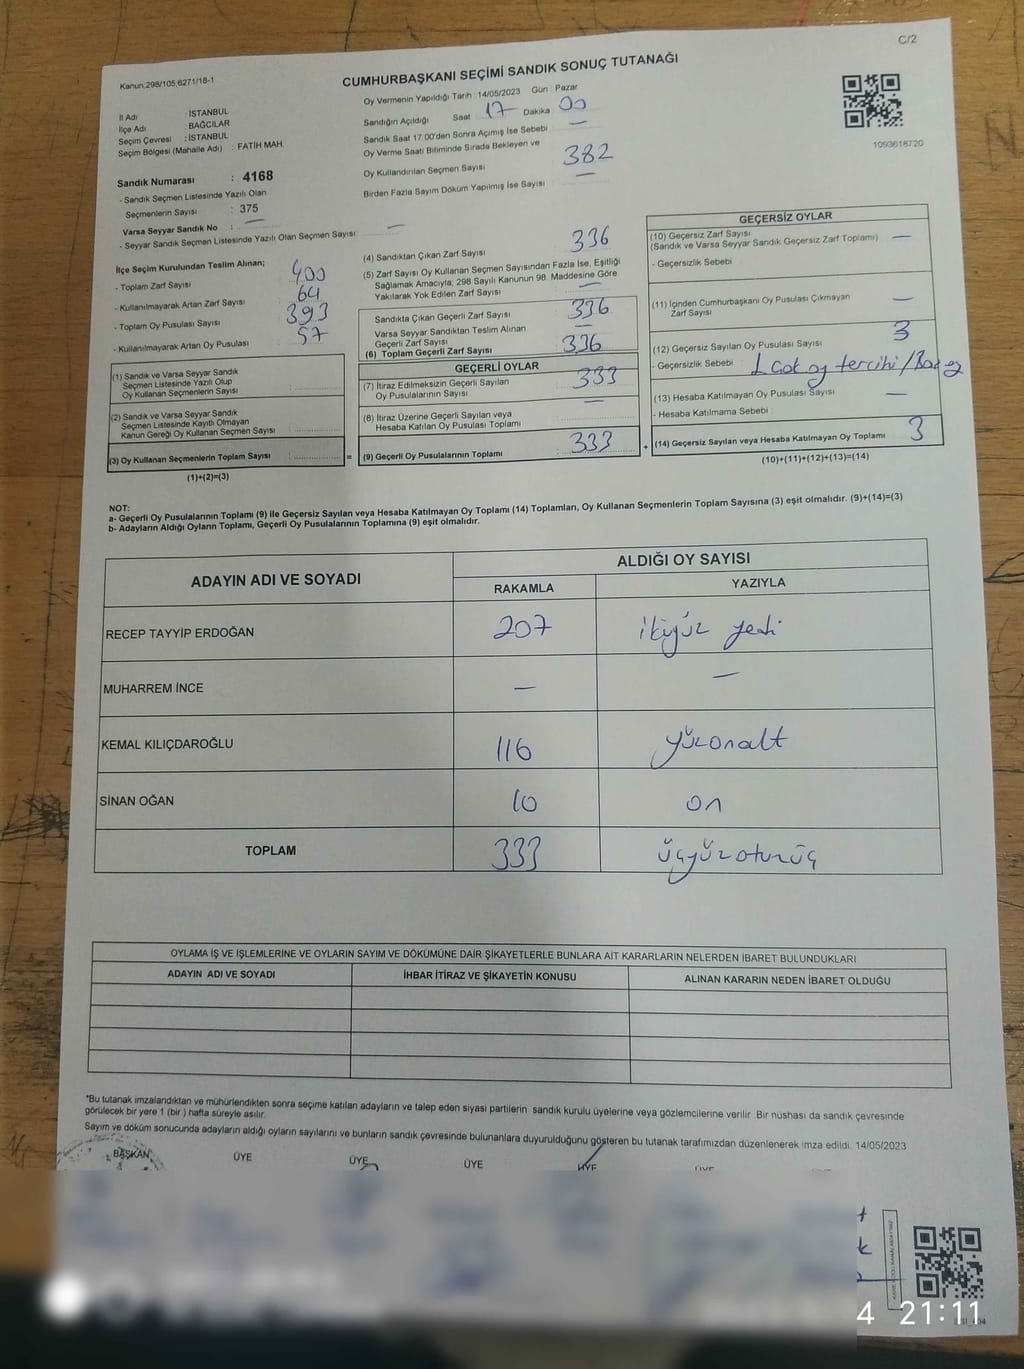 C/2
Kanun:298/105,6271/18-1
CUMHURBAŞKANI SEÇİMİ SANDIK SONUÇ TUTANAĞI
İl Adı : İSTANBUL
İlçe Adı : BAĞCILAR
Seçim Çevresi : İSTANBUL
Seçim Bölgesi (Mahalle Adı) : FATİH MAH.
Oy Vermenin Yapıldığı Tarih :14/05/2023 Gün : Pazar
Sandığın Açıldığı Saat 17 Dakika 00
Sandık Saat 17:00'den Sonra Açımış İse Sebebi —
Oy Verme Saati Bitiminde Sırada Bekleyen ve
Oy Kullandırılan Seçmen Sayısı 382
Birden Fazla Sayım Döküm Yapılmış İse Sayısı —
1093618720
Sandık Numarası : 4168
- Sandık Seçmen Listesinde Yazılı Olan
Seçmenlerin Sayısı : 375
Varsa Seyyar Sandık No : —
- Seyyar Sandık Seçmen Listesinde Yazılı Olan Seçmen Sayısı: —
İlçe Seçim Kurulundan Teslim Alınan;
- Toplam Zarf Sayısı 400
- Kullanılmayarak Artan Zarf Sayısı 64
- Toplam Oy Pusulası Sayısı 393
- Kullanılmayarak Artan Oy Pusulası 57
(1) Sandık ve Varsa Seyyar Sandık
Seçmen Listesinde Yazılı Olup
Oy Kullanan Seçmenlerin Sayısı :
(2) Sandık ve Varsa Seyyar Sandık
Seçmen Listesinde Kayıtlı Olmayan
Kanun Gereği Oy Kullanan Seçmen Sayısı :
(3) Oy Kullanan Seçmenlerin Toplam Sayısı :
(1)+(2)=(3)
(4) Sandıktan Çıkan Zarf Sayısı 336
(5) Zarf Sayısı Oy Kullanan Seçmen Sayısından Fazla İse, Eşitliği
Sağlamak Amacıyla; 298 Sayılı Kanunun 98. Maddesine Göre
Yakılarak Yok Edilen Zarf Sayısı —
Sandıkta Çıkan Geçerli Zarf Sayısı 336
Varsa Seyyar Sandıktan Teslim Alınan
Geçerli Zarf Sayısı —
(6) Toplam Geçerli Zarf Sayısı 336
GEÇERLİ OYLAR
(7) İtiraz Edilmeksizin Geçerli Sayılan
Oy Pusulalarının Sayısı 333
(8) İtiraz Üzerine Geçerli Sayılan veya
Hesaba Katılan Oy Pusulası Toplamı —
= (9) Geçerli Oy Pusulalarının Toplamı 333
GEÇERSİZ OYLAR
(10) Geçersiz Zarf Sayısı
(Sandık ve Varsa Seyyar Sandık Geçersiz Zarf Toplamı) —
- Geçersizlik Sebebi
(11) İçinden Cumhurbaşkanı Oy Pusulası Çıkmayan
Zarf Sayısı —
(12) Geçersiz Sayılan Oy Pusulası Sayısı 3
- Geçersizlik Sebebi oy tercihi/
(13) Hesaba Katılmayan Oy Pusulası Sayısı —
- Hesaba Katılmama Sebebi
+ (14) Geçersiz Sayılan veya Hesaba Katılmayan Oy Toplamı 3
(10)+(11)+(12)+(13)=(14)
NOT:
a- Geçerli Oy Pusulalarının Toplamı (9) ile Geçersiz Sayılan veya Hesaba Katılmayan Oy Toplamı (14) Toplamları, Oy Kullanan Seçmenlerin Toplam Sayısına (3) eşit olmalıdır. (9)+(14)=(3)
b- Adayların Aldığı Oyların Toplamı, Geçerli Oy Pusulalarının Toplamına (9) eşit olmalıdır.
ADAYIN ADI VE SOYADI ALDIĞI OY SAYISI
RAKAMLA YAZIYLA
RECEP TAYYİP ERDOĞAN 207 ikiyüz yedi
MUHARREM İNCE — —
KEMAL KILIÇDAROĞLU 116 yüzonalt
SİNAN OĞAN 10 on
TOPLAM 333 üçyüzotuzüç
OYLAMA İŞ VE İŞLEMLERİNE VE OYLARIN SAYIM VE DÖKÜMÜNE DAİR ŞİKAYETLERLE BUNLARA AİT KARARLARIN NELERDEN İBARET BULUNDUKLARI
ADAYIN ADI VE SOYADI İHBAR İTİRAZ VE ŞİKAYETİN KONUSU ALINAN KARARIN NEDEN İBARET OLDUĞU
*Bu tutanak imzalandıktan ve mühürlendikten sonra seçime katılan adayların ve talep eden siyasi partilerin sandık kurulu üyelerine veya gözlemcilerine verilir. Bir nüshası da sandık çevresinde
görülecek bir yere 1 (bir ) hafta süreyle asılır.
Sayım ve döküm sonucunda adayların aldığı oyların sayılarını ve bunların sandık çevresinde bulunanlara duyurulduğunu gösteren bu tutanak tarafımızdan düzenlenerek imza edildi. 14/05/2023
BAŞKAN ÜYE ÜYE ÜYE ÜYE ÜYE
4 21:11